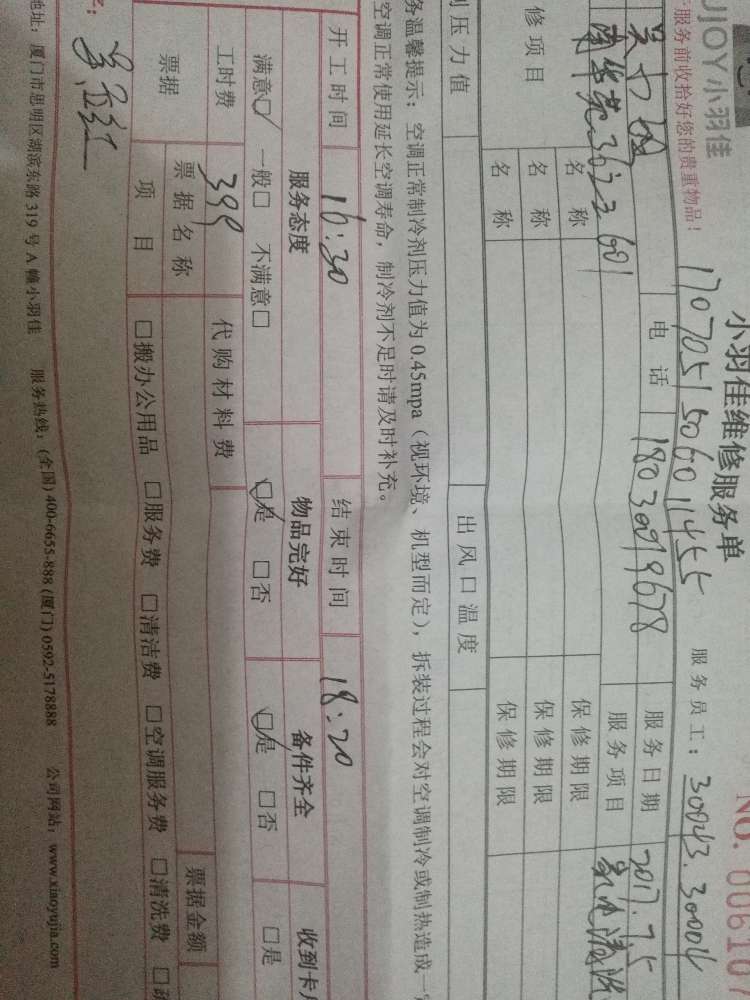 UJOY小羽佳
小羽佳维修服务单
NO. 006107
服务前收拾好您的贵重物品！
1707051506011455
服务员工：30043.30004
电话
18030019678
服务日期
2017.7.5
3622601
服务项目
修项目
名称
保修期限
名称
保修期限
名称
保修期限
压力值
出风口温度
务温馨提示：空调正常制冷剂压力值为0.45mpa（视环境、机型而定），拆装过程会对空调制冷或制热造成一
空调正常使用延长空调寿命，制冷剂不足时请及时补充。
开工时间
16:30
结束时间
18:20
服务态度
物品完好
备件齐全
收到卡
满意☑ 一般□ 不满意□
☑是 □否
☑是 □否
□是
工时费
399
代购材料费
票据
票据名称
票据金额
项目
□搬办公用品 □服务费 □清洁费 □空调服务费 □清洗费
地址：厦门市思明区湖滨东路319号A幢小羽佳 服务热线：(全国) 400-6655-888 (厦门) 0592-5178888 公司网站：www.xiaoyujia.com